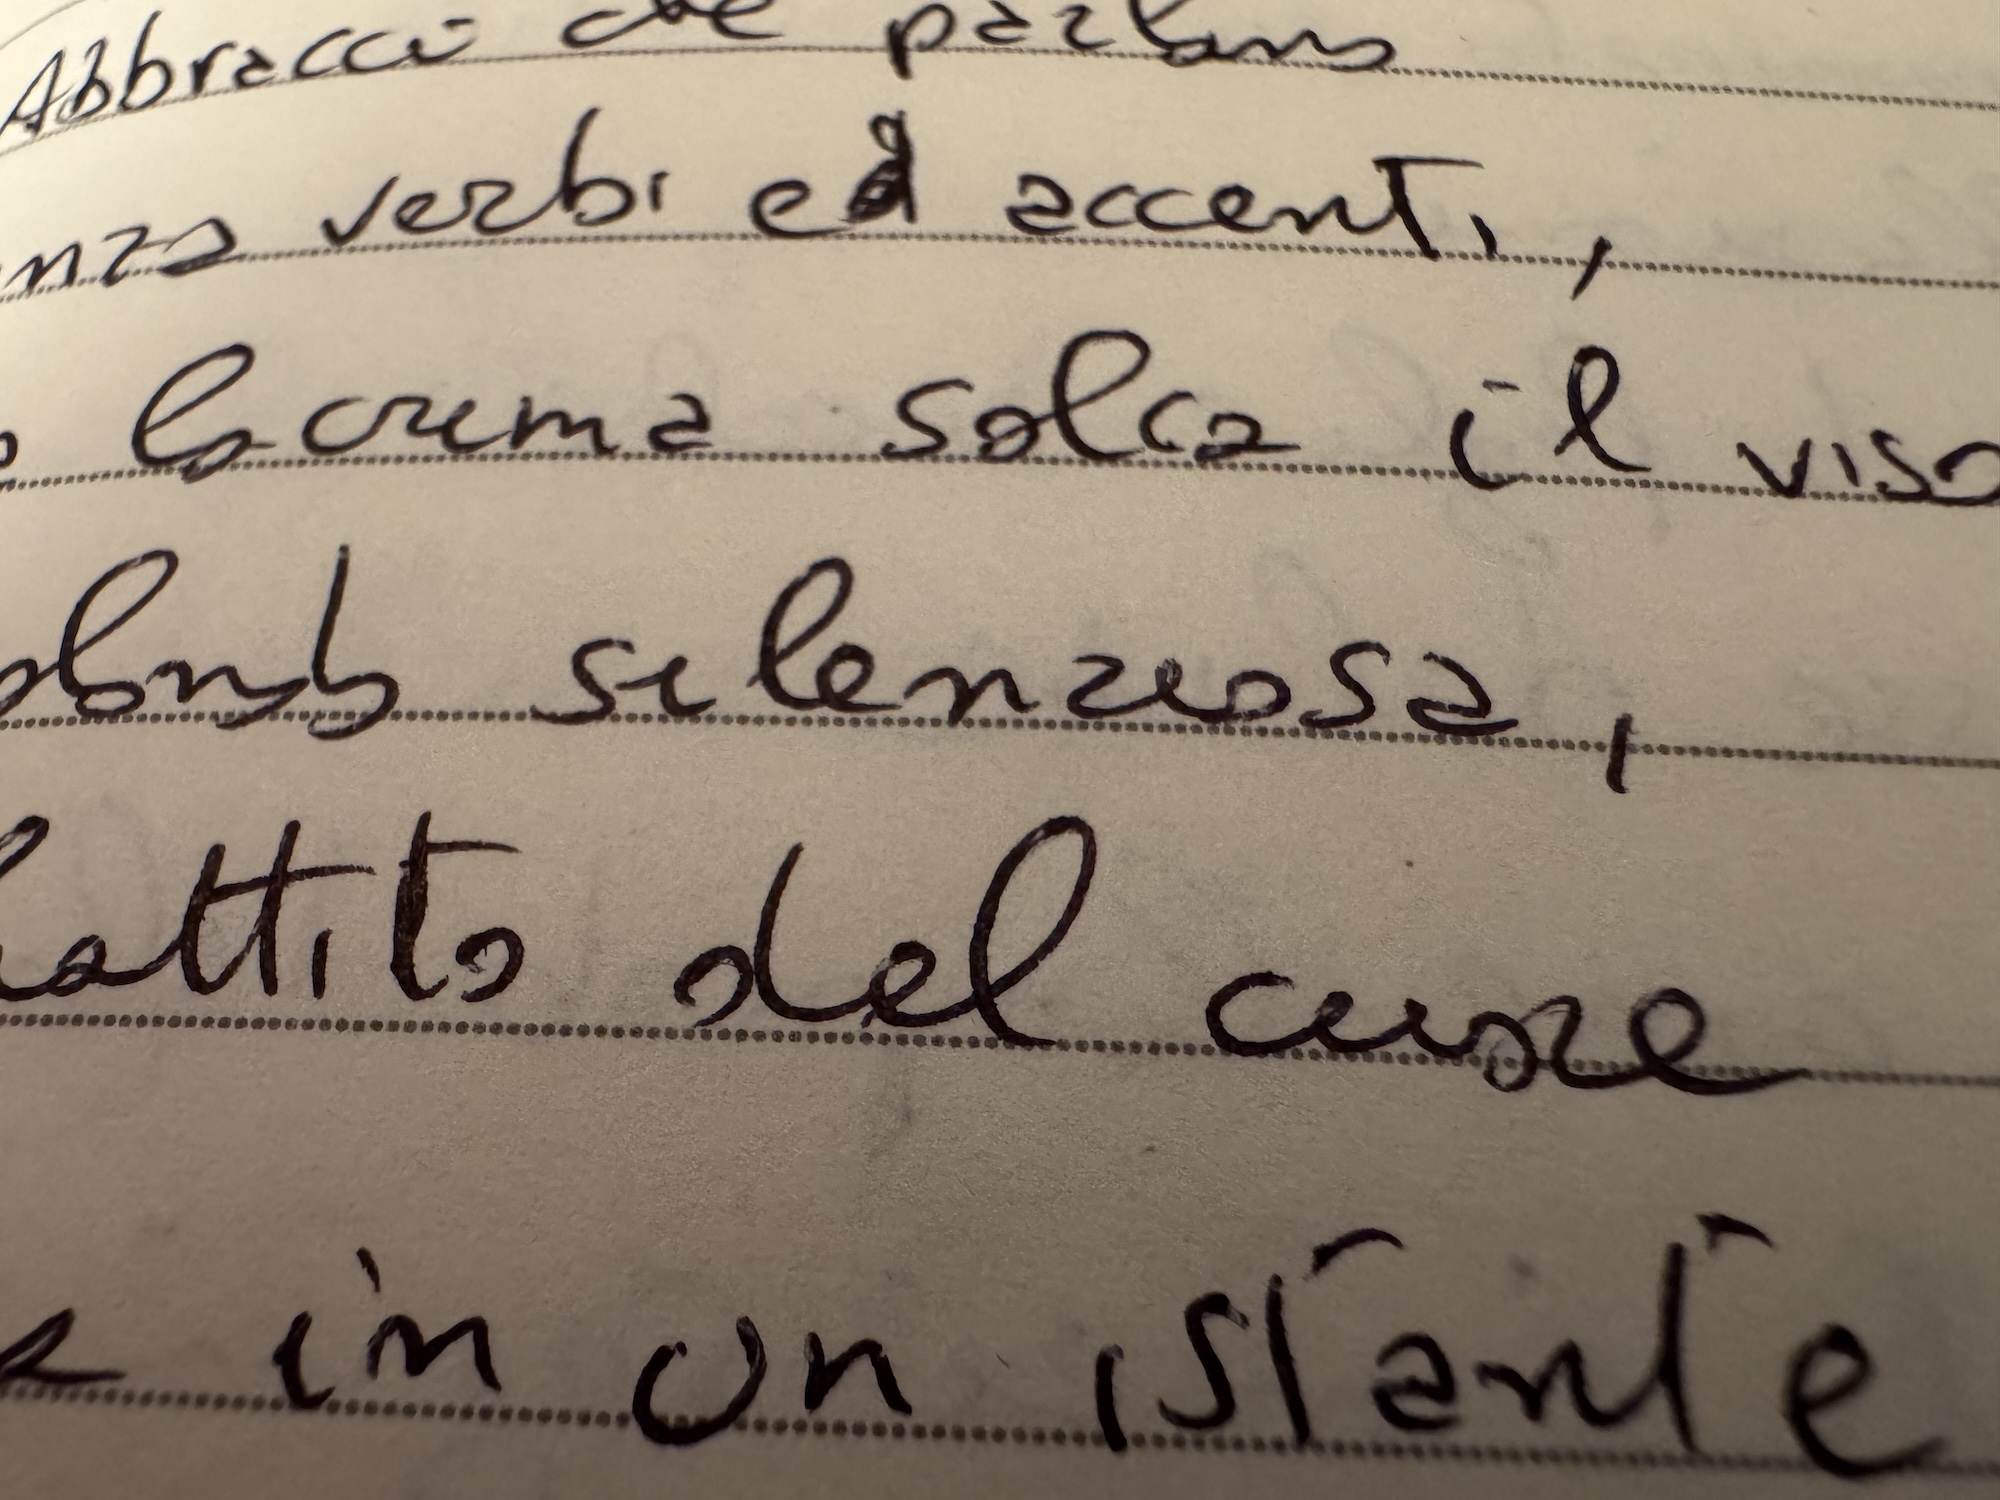 Abbracci che parlano
nza verbi ed accenti,
lacrima solca il viso
silenziosa,
battito del cuore
in un istante